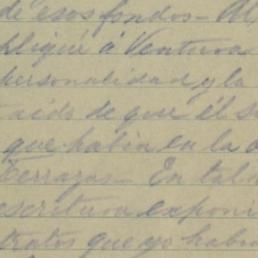 de esos fondos - Al
pliqué á Ventura
personalidad y la
de que él s
que había en la
Terrazas - En tal
escritura exponi
tratos que yo habia